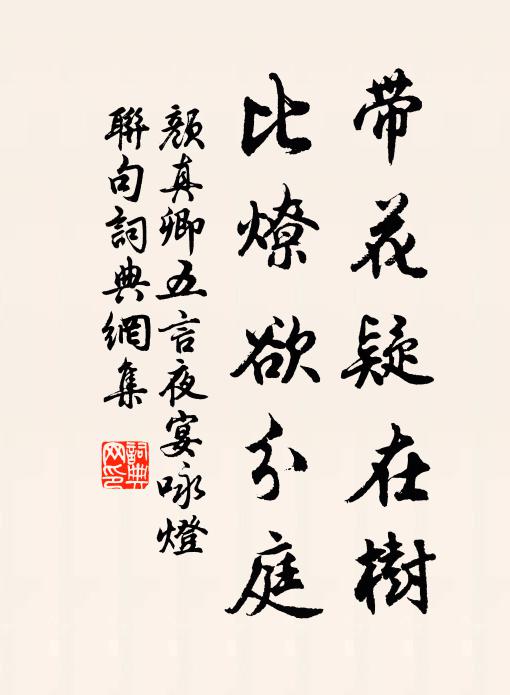 带花疑在樹
比燎欲分庭
顏真卿五言夜宴咏燈
聯句詞典網集
詞典網印